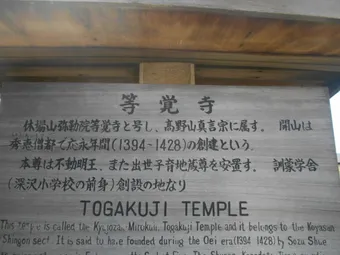 等覚寺
休場山弥勒院等覚寺と号し、高野山真言宗に属す。 開山は
秀恵僧都で応永年間(1394-1428)の創建という。
本尊は不動明王、また出世子育地蔵尊を安置す。 訓蒙学舎
(深沢小学校の前身)創設の地なり
TOGAKUJI TEMPLE
This temple is called the Kyujozan, Mirokuin, Togakuji Temple and it belongs to the Koyasan
Shingon sect. It is said to have founded during the Oei era (1394 1428) by Sozu Shue